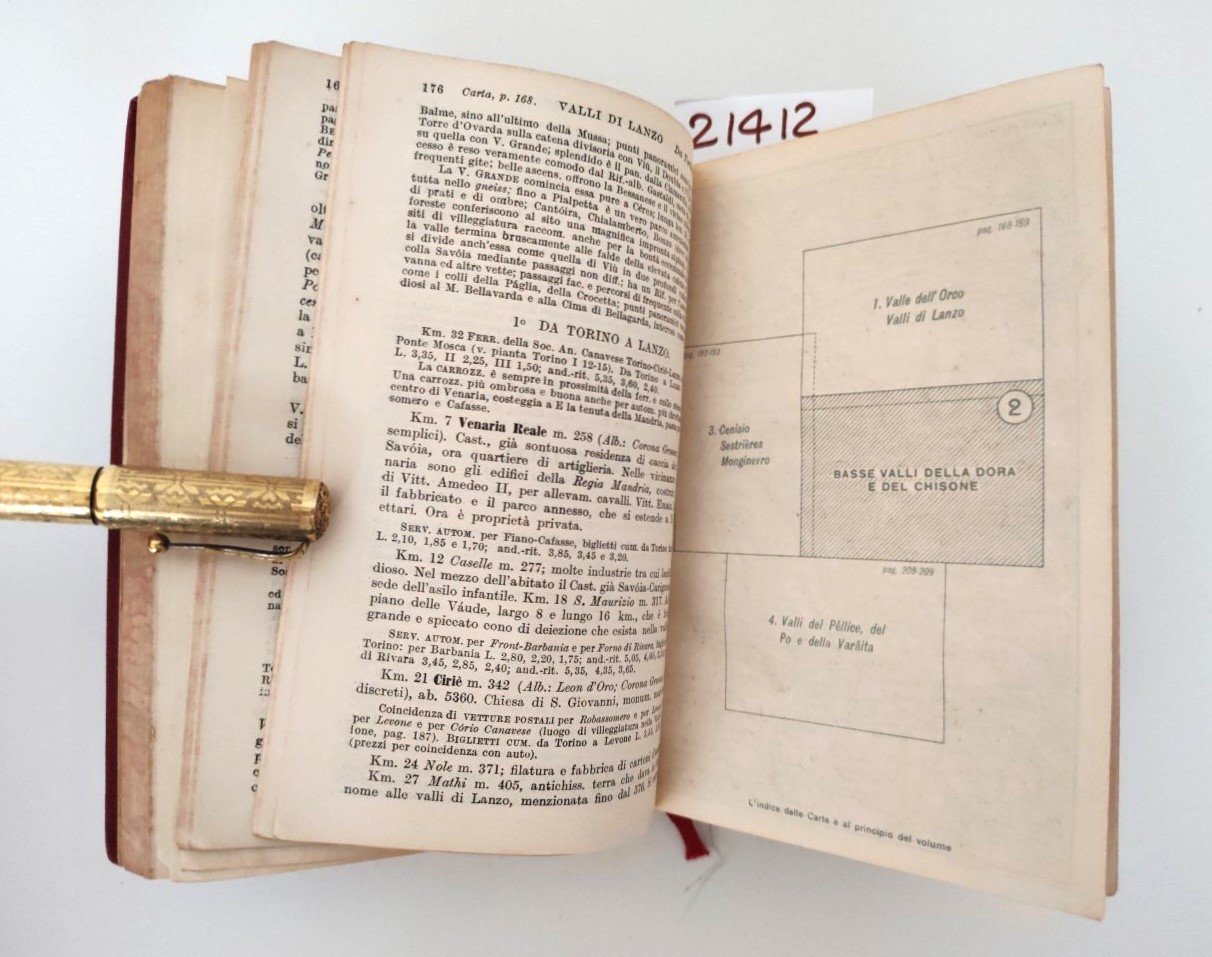 176 Carta, p. 168. VALLI DI LANZO
Balme, sino all'ultimo della Mussa; punti panoramici
Torre d'Ovarda sulla catena divisoria con Viù, il
su quella con V. Grande; splendido è il pan. dalla
cesso è reso veramente comodo dal Rif.-alb. Gastaldi,
frequenti gite; belle ascens. offrono la Bessanese e
La V. GRANDE comincia essa pure a Céres;
tutta nello gneiss; fino a Pialpetta è un vero parco
di prati e di ombre; Cantóira, Chialamberto, Bonzo
foreste conferiscono al sito una magnifica impronta
siti di villeggiatura raccom. anche per la bontà
la valle termina bruscamente alle falde della elevata
si divide anch'essa come quella di Viù in due
colla Savóia mediante passaggi non diff.; ha un Rif. per
vanna ed altre vette; passaggi fac. e percorsi di frequente
come i colli della Páglia, della Crocetta; punti panoramici
diosi al M. Bellavarda e alla Cima di Bellagarda,
1º DA TORINO A LANZO.
Km. 32 FERR. della Soc. An. Canavese Torino-Ciriè-Lanzo
Ponte Mosca (v. pianta Torino I 12-15). Da Torino a
L. 3,35, II 2,25, III 1,50; and.-rit. 5,35, 3,60, 2,40.
La CARROZZ. è sempre in prossimità della ferr. e
Una carrozz. più ombrosa e buona anche per autom. più
centro di Venaria, costeggia a E la tenuta della Mandria,
somero e Cafasse.
Km. 7 Venaria Reale m. 258 (Alb.: Corona Grossa
semplici). Cast., già sontuosa residenza di caccia
Savóia, ora quartiere di artiglieria. Nelle
naria sono gli edifici della Regia Mandria,
di Vitt. Amedeo II, per allevam. cavalli. Vitt.
il fabbricato e il parco annesso, che si estende a
ettari. Ora è proprietà privata.
SERV. AUTOM. per Fiano-Cafasse, biglietti cum. da Torino
L. 2,10, 1,85 e 1,70; and.-rit. 3,85, 3,45 e 3,20.
Km. 12 Caselle m. 277; molte industrie tra cui
dioso. Nel mezzo dell'abitato il Cast. già Savóia-Carignano
sede dell'asilo infantile. Km. 18 S. Maurizio m. 317.
piano delle Váude, largo 8 e lungo 16 km., che è
grande e spiccato cono di deiezione che esista nella
SERV. AUTOM. per Front-Barbania e per Forno di Rivara,
Torino: per Barbania L. 2,80, 2,20, 1,75; and.-rit. 5,05,
di Rivara 3,45, 2,85, 2,40; and.-rit. 5,35, 4,35, 3,65.
Km. 21 Ciriè m. 342 (Alb.: Leon d'Oro; Corona Grossa
discreti), ab. 5360. Chiesa di S. Giovanni, monum.
Coincidenza di VETTURE POSTALI per Robassomero e per
per Levone e per Cório Canavese (luogo di villeggiatura
lone, pag. 187). BIGLIETTI CUM. da Torino a Levone L.
(prezzi per coincidenza con auto).
Km. 24 Nole m. 371; filatura e fabbrica di cartoni
Km. 27 Mathi m. 405, antichiss. terra che
nome alle valli di Lanzo, menzionata fino dal
21412
pag. 168-169
1. Valle dell'Orco
Valli di Lanzo
pag. 192-193
2
3. Cenisio
Sestrières
Monginevro
BASSE VALLI DELLA DORA
E DEL CHISONE
pag. 208-209
4. Valli del Pèllice, del
Po e della Varàita
L'indice delle Carte è al principio del volume